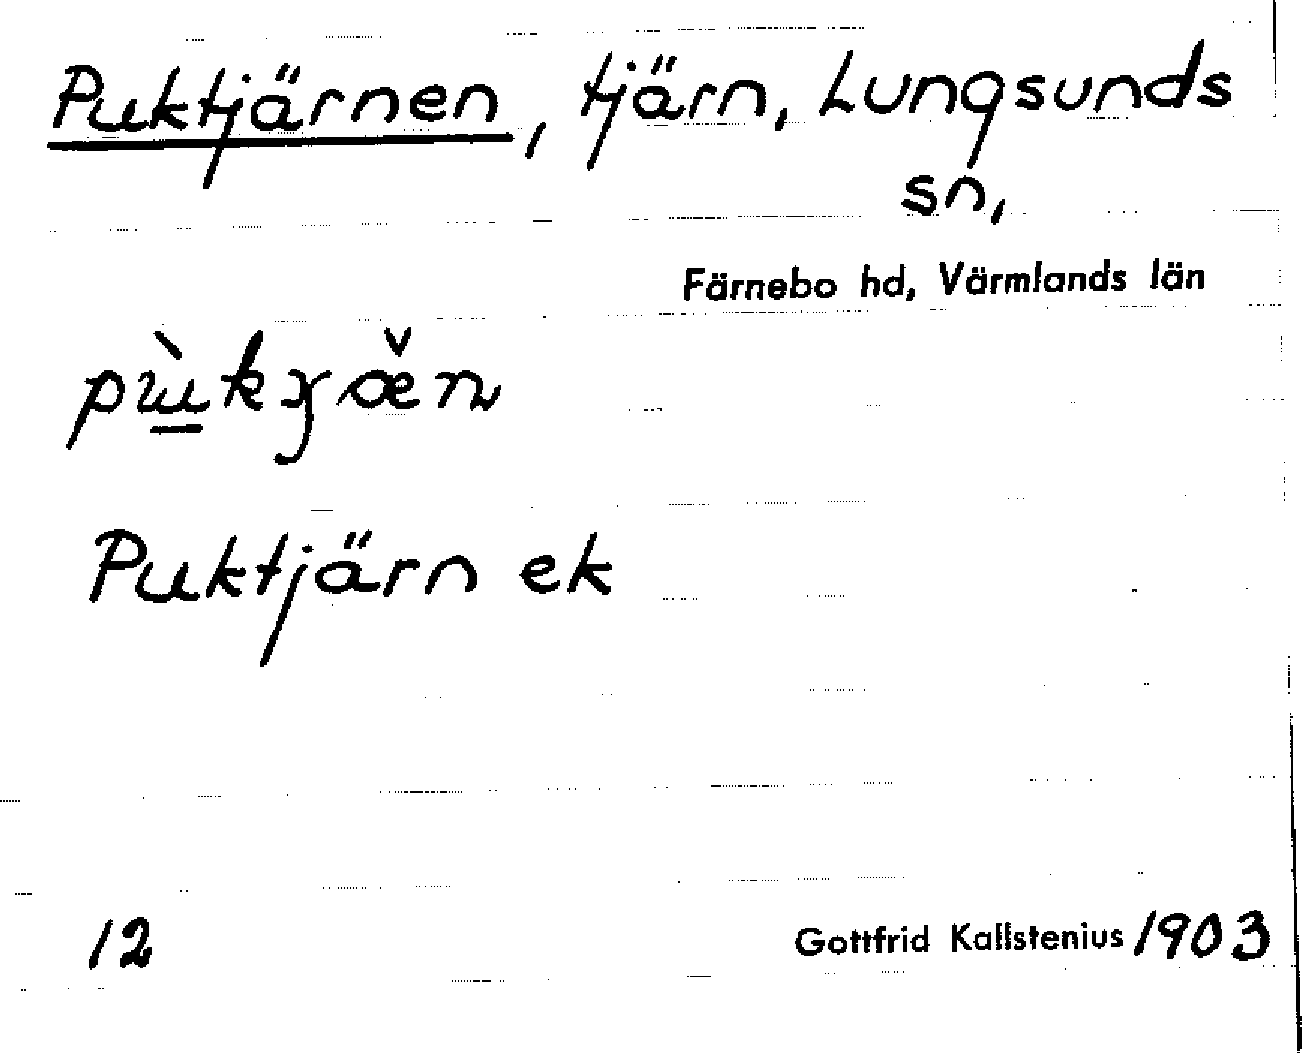 Puktjärnen, tjärn, Lungsunds
sn,
Färnebo hd, Värmlands län
Puktjärn ek
12
Gottfrid Kallstenius 1903